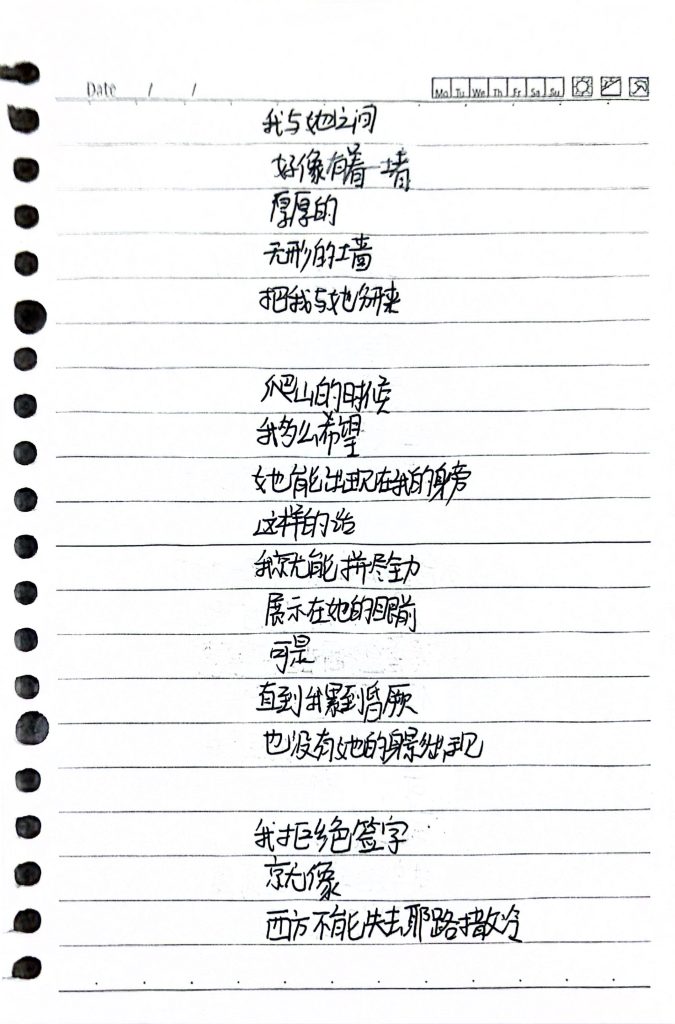 Date / /
Mo Tu We Th Fr Sa Su
我与她之间
好像有着一堵
厚厚的
无形的墙
把我与她分开来
爬山的时候
我多么希望
她能出现在我的身旁
这样的话
我就能拼尽全力
展示在她的眼前
可是
直到我累到昏厥
也没有她的身影出现
我拒绝签字
就像
西方不能失去耶路撒冷